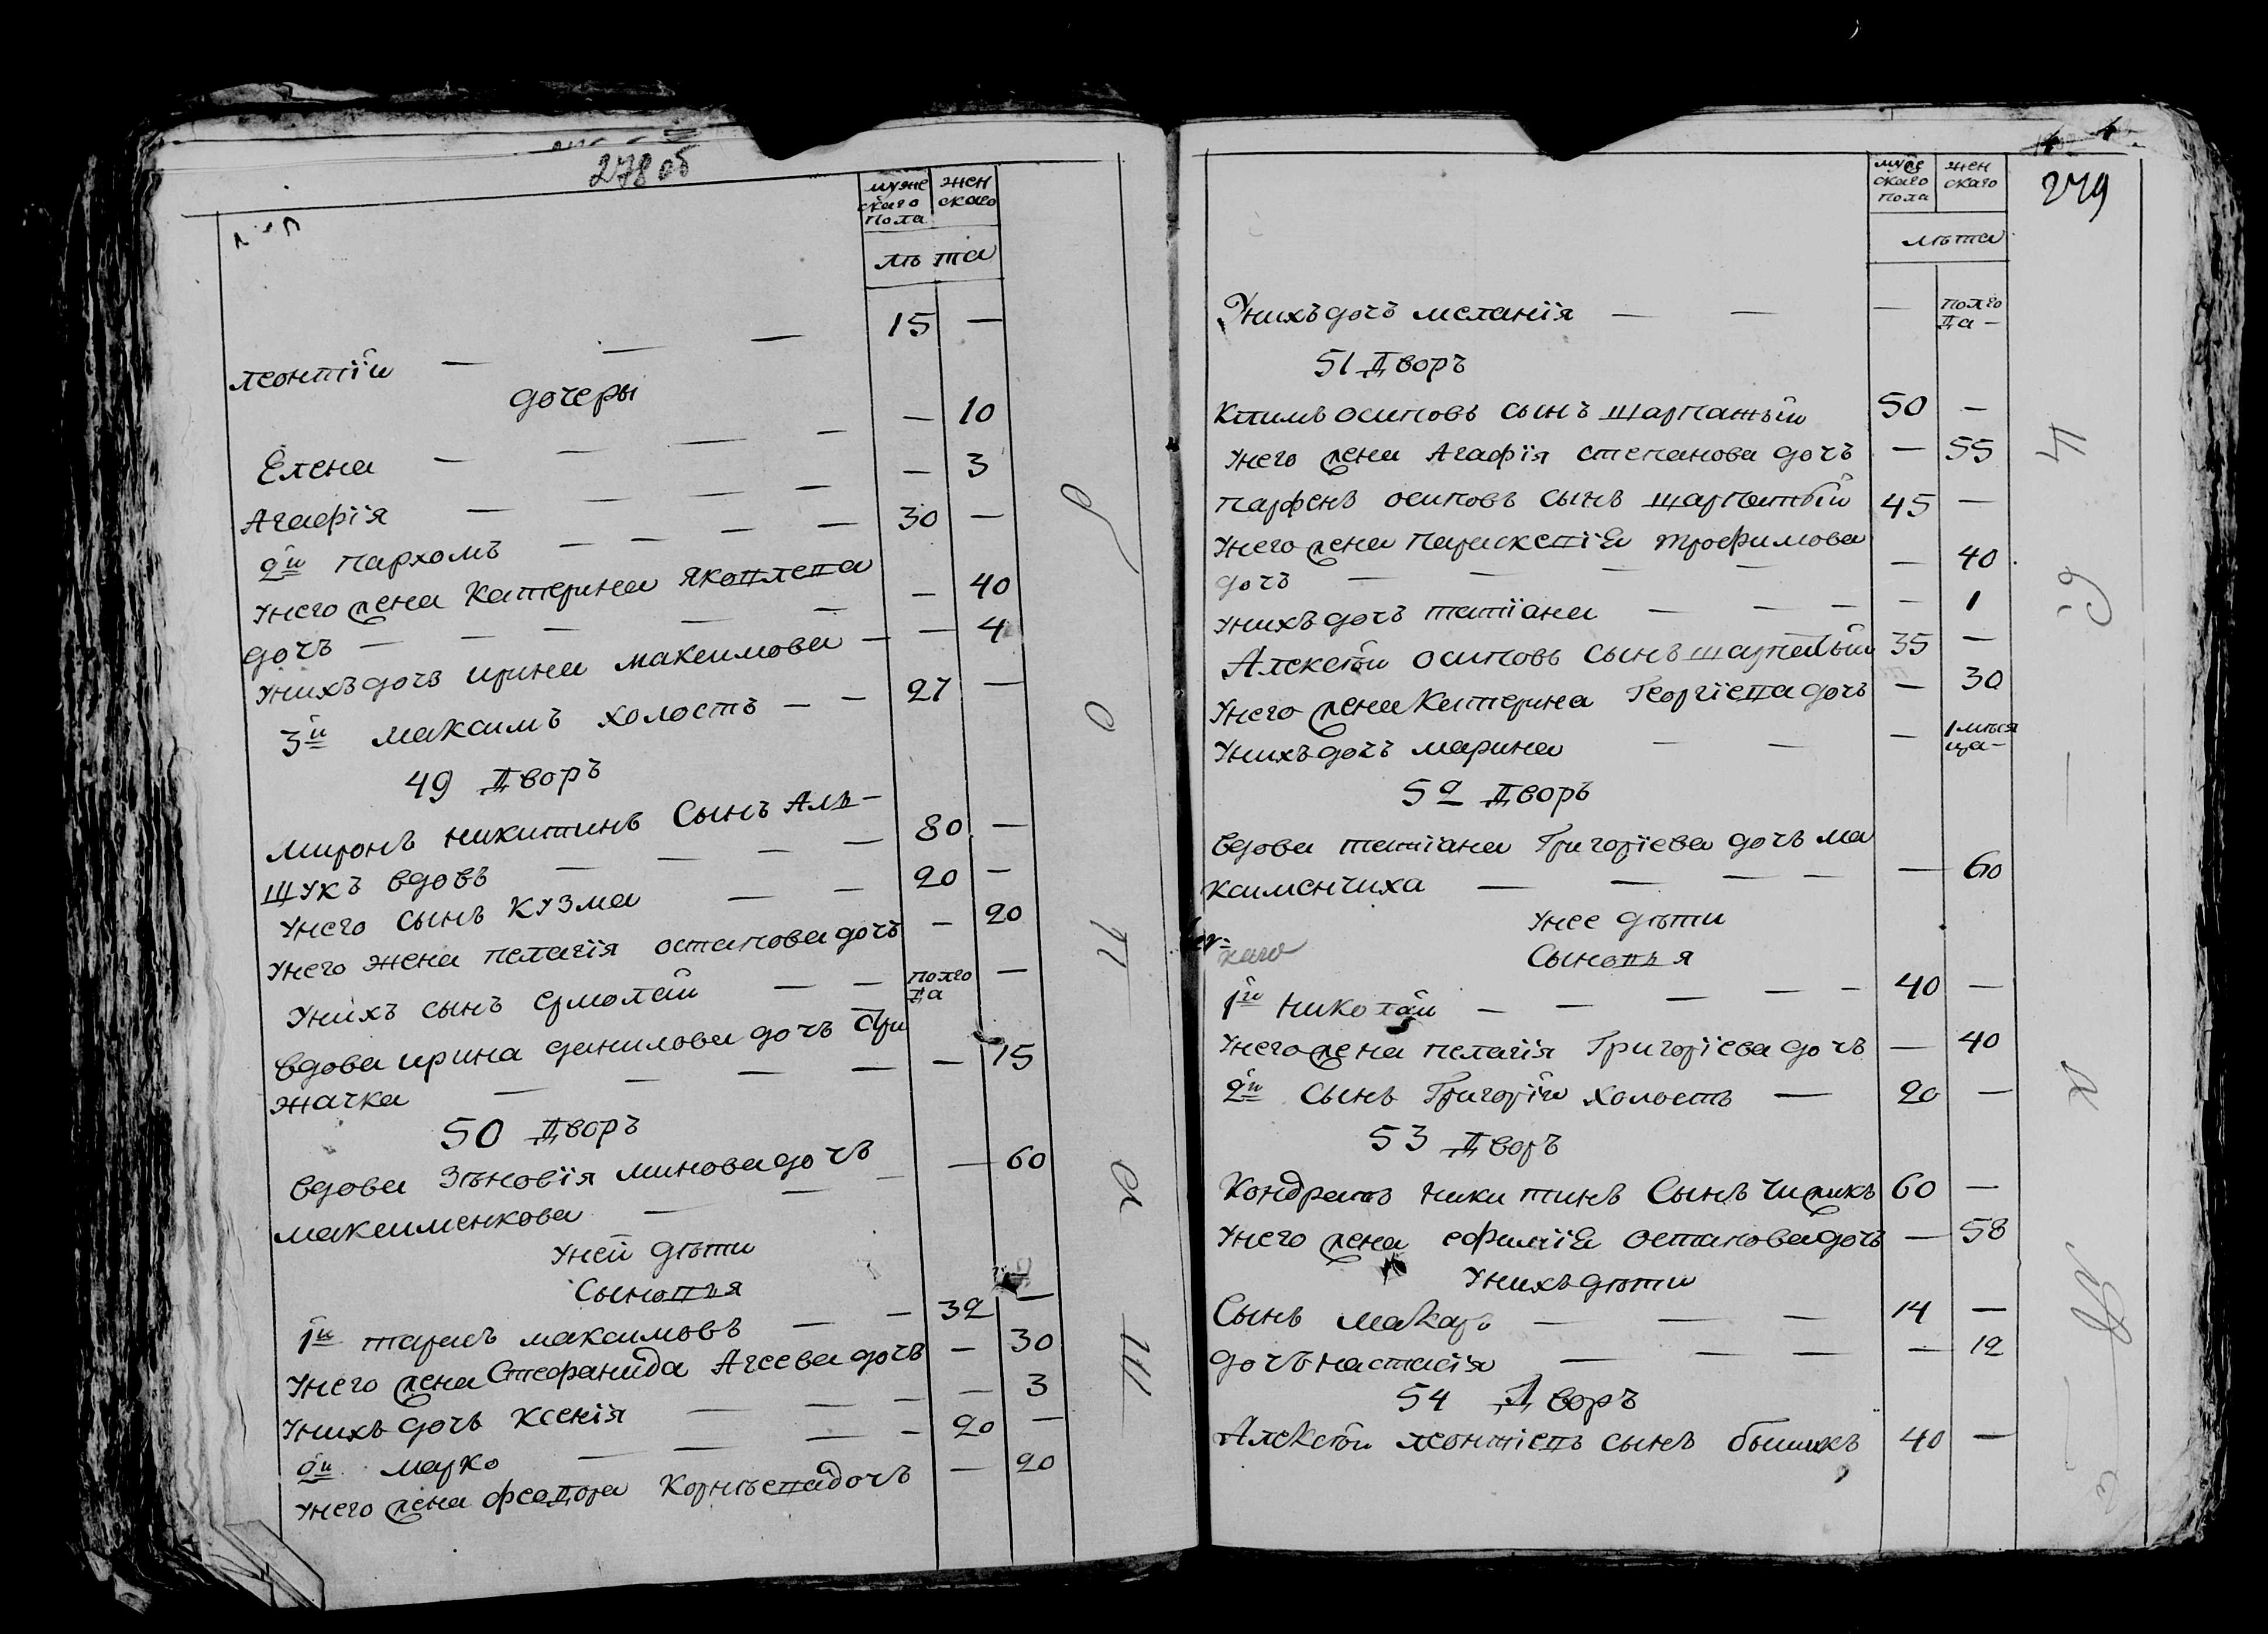 278 об
муже
скаго
пола
жен
скаго
лѣта
Леонтій — — — 15 —
дочеры
Елена — — — — — 10
Агафія — — — — — 3
2й Пархомъ — — — — 30 —
унего жена Катерина Яковлева
дочъ — — — — — — 40
унихъ дочъ Ирина Максимова — — 4
3й Максимъ холостъ — — 27 —
49 Дворъ
Миронъ Никитинъ Сынъ Алѣ-
щукъ вдовъ — — — — 80 —
унего сынъ Кузма — — 20 —
унего жена Пелагія Остапова дочъ — 20
унихъ сынъ Ермолай — — полго
да —
вдова Ирина Данилова дочъ При
жачка — — — — — 15
50 Дворъ
вдова Зѣновія Минова дочъ — 60
Максименкова — — —
уней дѣти
Сыновья
1й Тарасъ Максимовъ — — 32 —
унего жена Стефанида Агеева дочъ — 30
унихъ дочъ Ксенія — — — — 3
2й Марко — — — — 20 —
унего жена Феодора Корнѣева дочъ — 20
муже
скаго
пола
жен
скаго
279
лѣта
Унихъ дочъ Меланія — — — полго
да —
51 Дворъ
Осиповъ сынъ 50 —
унего жена Агафія Степанова дочъ — 55
Парфенъ Осиповъ сынъ 45 —
унего жена Параскевія Трофимова
дочъ — — — — — 40
унихъ дочъ Татіана — — — — 1
Алексѣй Осиповъ Сынъ 35 —
унего жена Катерина Георгіева дочъ — 30
унихъ дочъ Марина — — — 1 мѣся
ца —
52 Дворъ
вдова Татіана Григоріева дочъ Ма
ксименчиха — — — — — 60
унее дѣти
каго
Сыновья
1й Николай — — — — — 40 —
унего жена Пелагія Григоріева дочъ — 40
2й Сынъ Григорій холостъ — 20 —
53 Дворъ
Кондратъ Никитинъ Сынъ Чижикъ 60 —
унего жена Ефимія Остапова дочъ — 58
унихъ дѣти
Сынъ Макаръ — — — 14 —
дочъ Настасія — — — — 12
54 Дворъ
Алексѣй Леонтіевъ сынъ 40 —